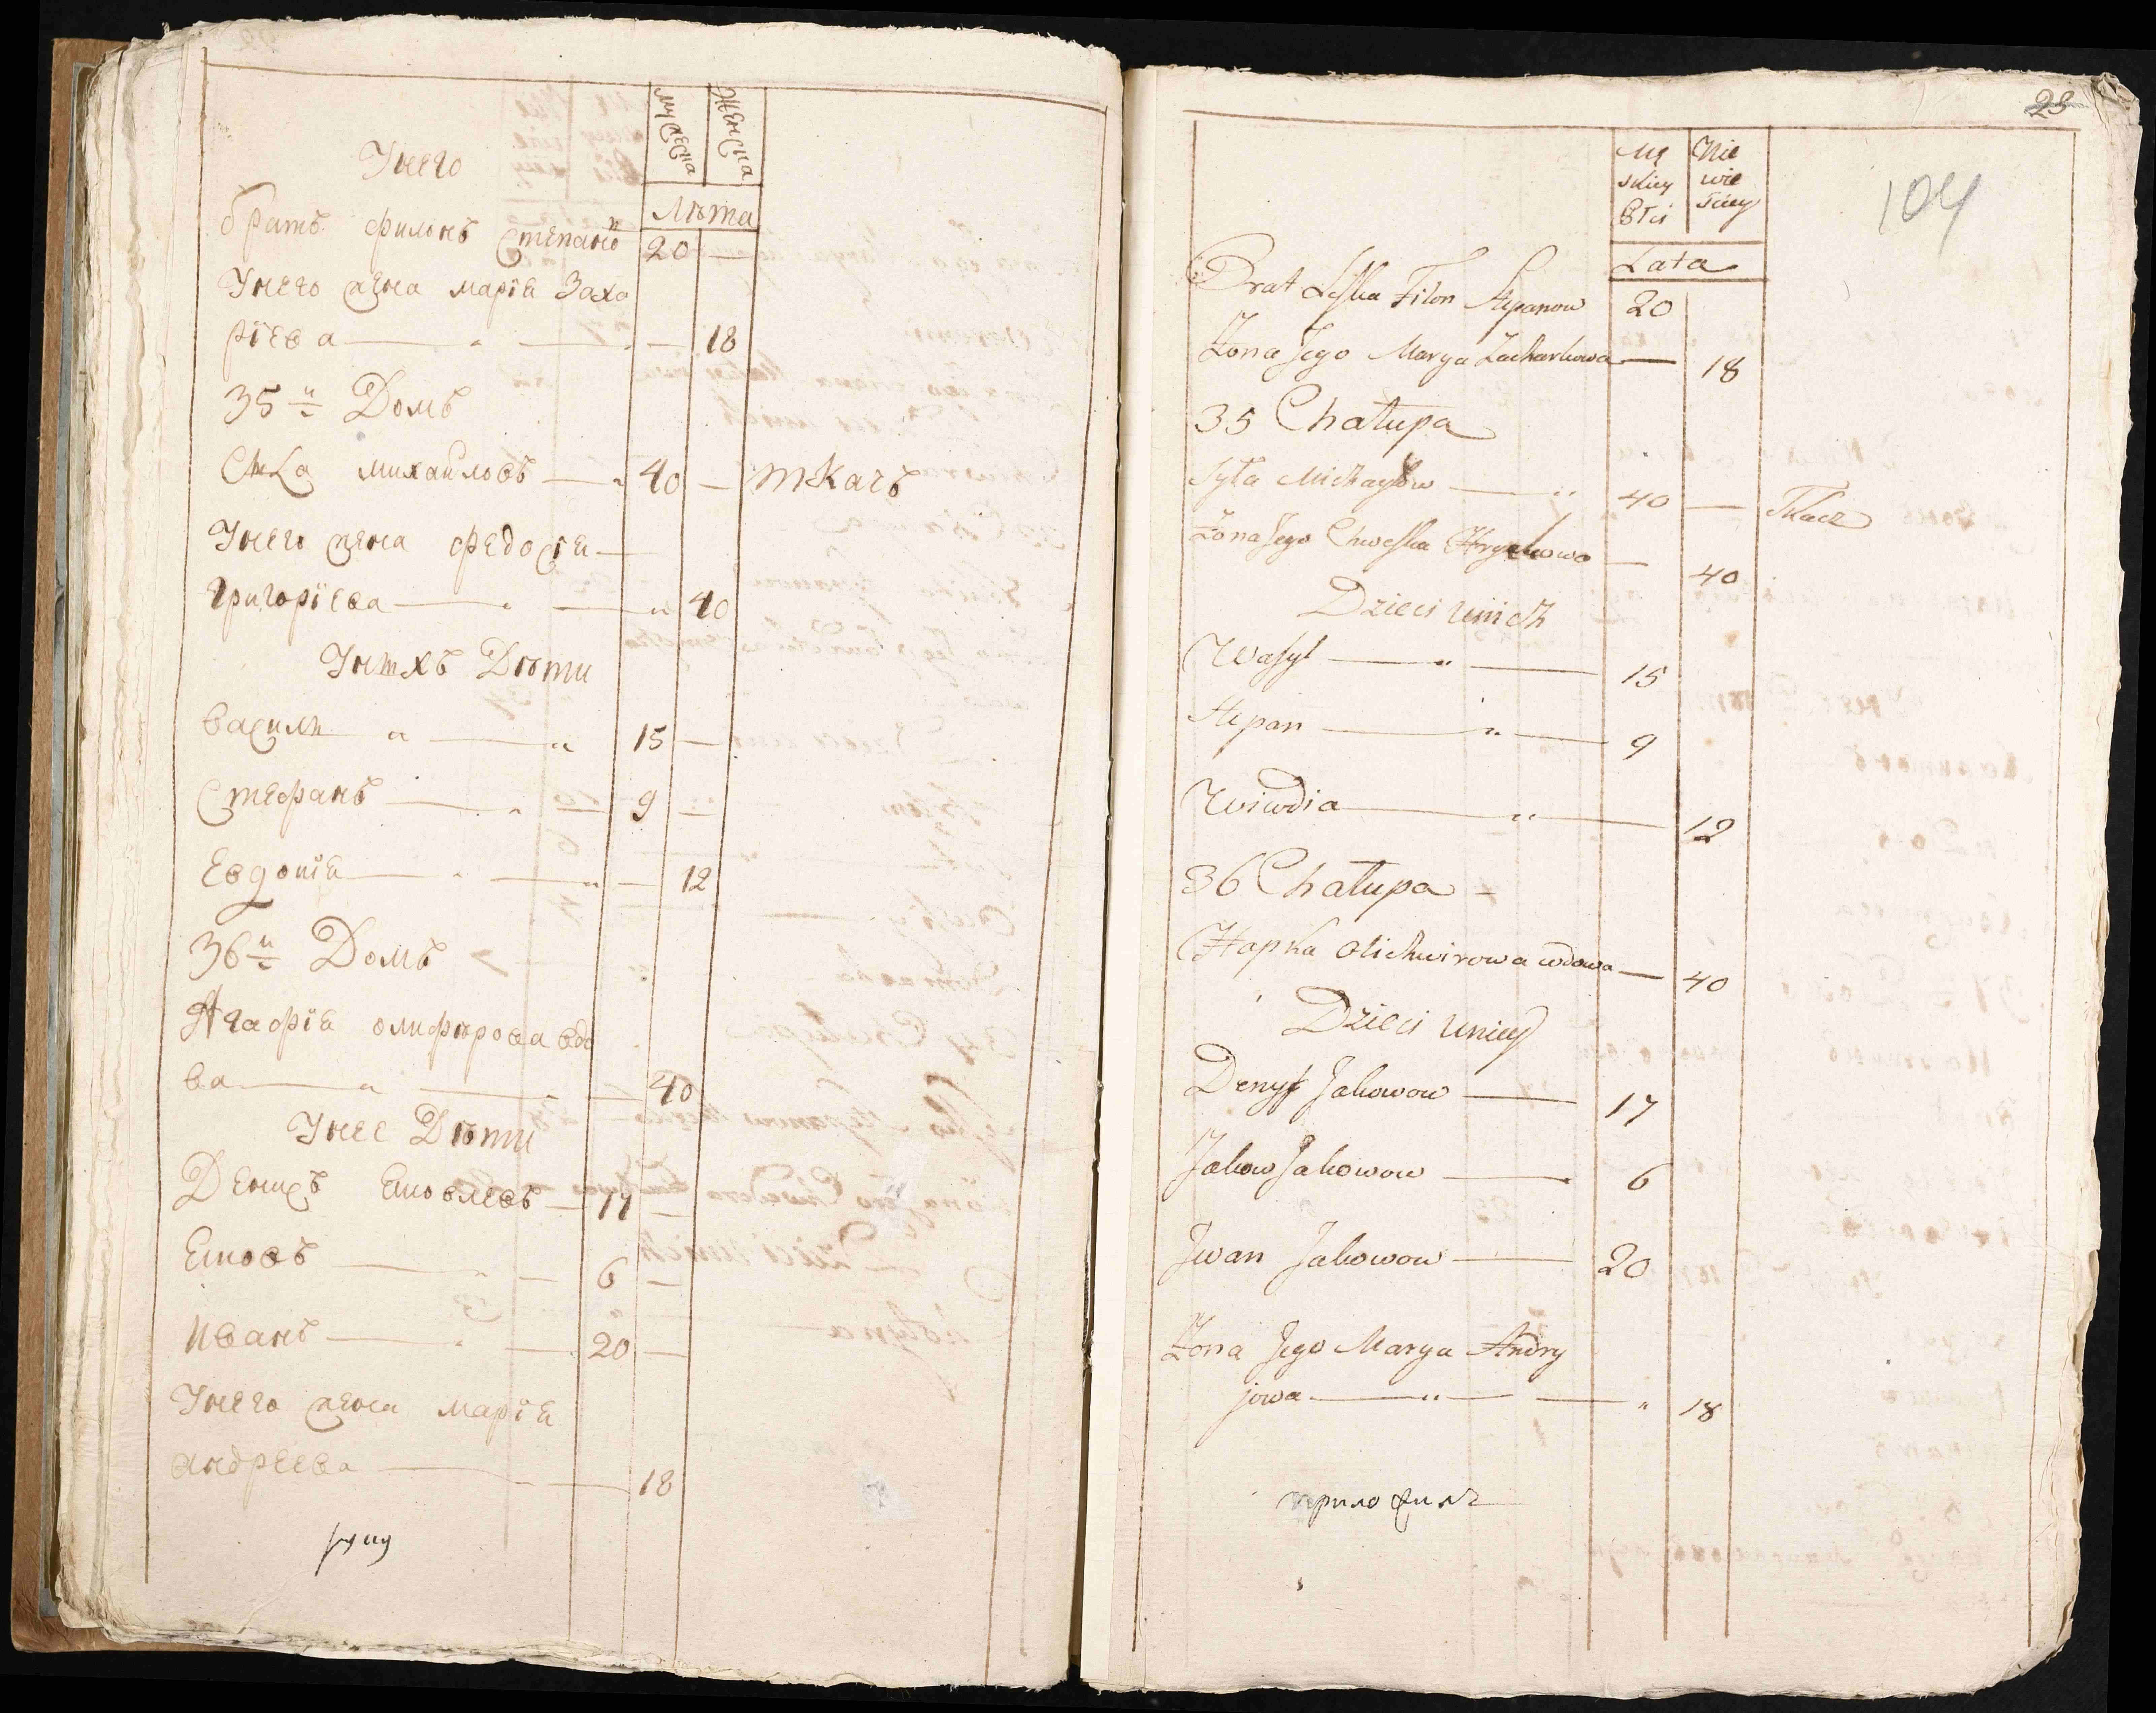 мужеска
женска
Унего
Лѣта
братъ филонъ Степано 20 —
Унего жена марія Заха
ріева — — 18
35й Домъ
Сила михайловъ — 40 — ткачъ
Унего жена федосія —
Григоріева — 40
Унихъ Дѣти
Василь — 15 —
Стефанъ — 9 —
Евдокія — — 12
36й Домъ
Агафія олифѣрова вдо
ва — — 40
Унее Дѣти
Денисъ Яковлевъ — 17 —
Яковъ — 6 —
Иванъ — 20 —
Унего жена марія
андреева — 18
руку
25
104
Mę
skiey
Płci
Nie
wie
sciey
Lata
Brat Leska Filon Stepanow 20
Żona Jego Marya Zacharkowa — 18
35 Chałupa
Syła Michayłow — 40 — Tkacz
Żona Jego Chweska Hryckowa — 40
Dzieci unich
Wasyl — 15
Stepan — 9
Wiwdia — 12
36 Chałupa —
Hapka Olichwirowa wdowa — 40
Dzieci uniey
Denys Jakowow — 17
Jakow Jakowow — 6
Jwan Jakowow — 20
Żona Jego Marya Andry
jowa — 18
приложилъ